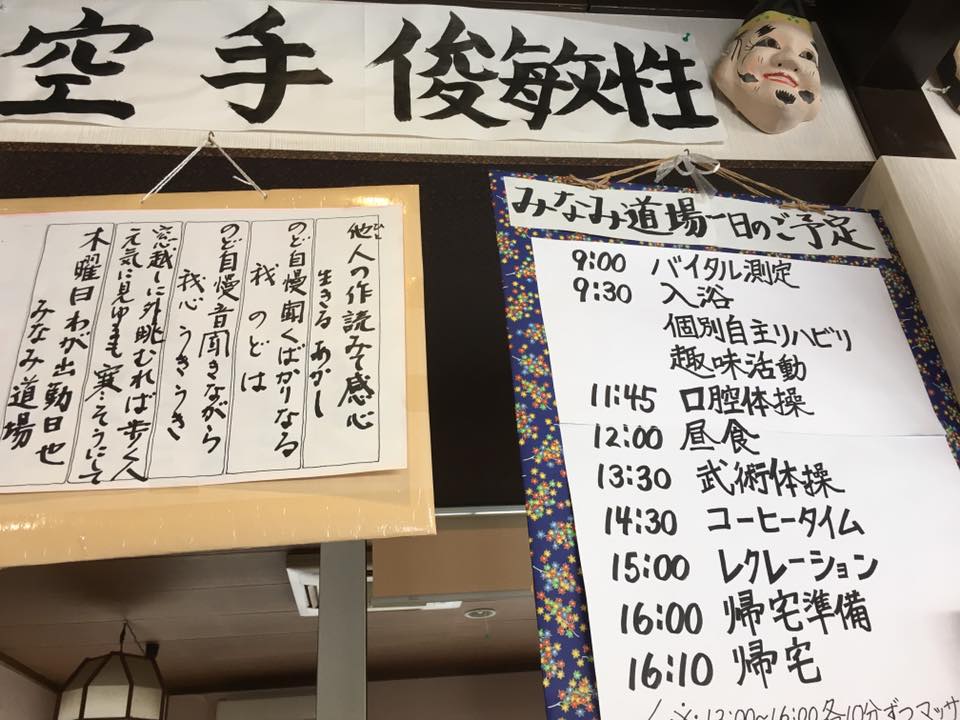 空手 俊敏性
他人の作読みて感心
ひと
生きるあかし
のど自慢聞くばかりなる
我 のどは
のど自慢音聞きながら
我心 うきうき
窓越しに外眺むれば歩く人
元気に見ゆるも寒そうにして
木曜日わが出勤日也
みなみ道場
みなみ道場一日のご予定
9:00 バイタル測定
9:30 入浴
個別自主リハビリ
趣味活動
11:45 口腔体操
12:00 昼食
13:30 武術体操
14:30 コーヒータイム
15:00 レクレーション
16:00 帰宅準備
16:10 帰宅
※・13:00~16:00 各10分ずつマッサ